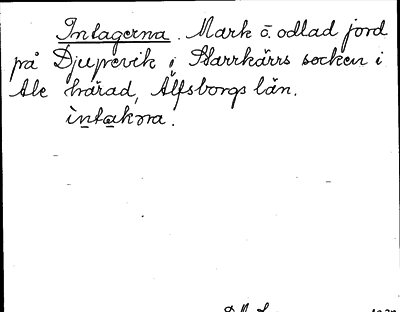 Intagerna. Mark o. odlad jord
på Djupevik i Starrkärrs socken i
Ale härad, Älfsborgs län.